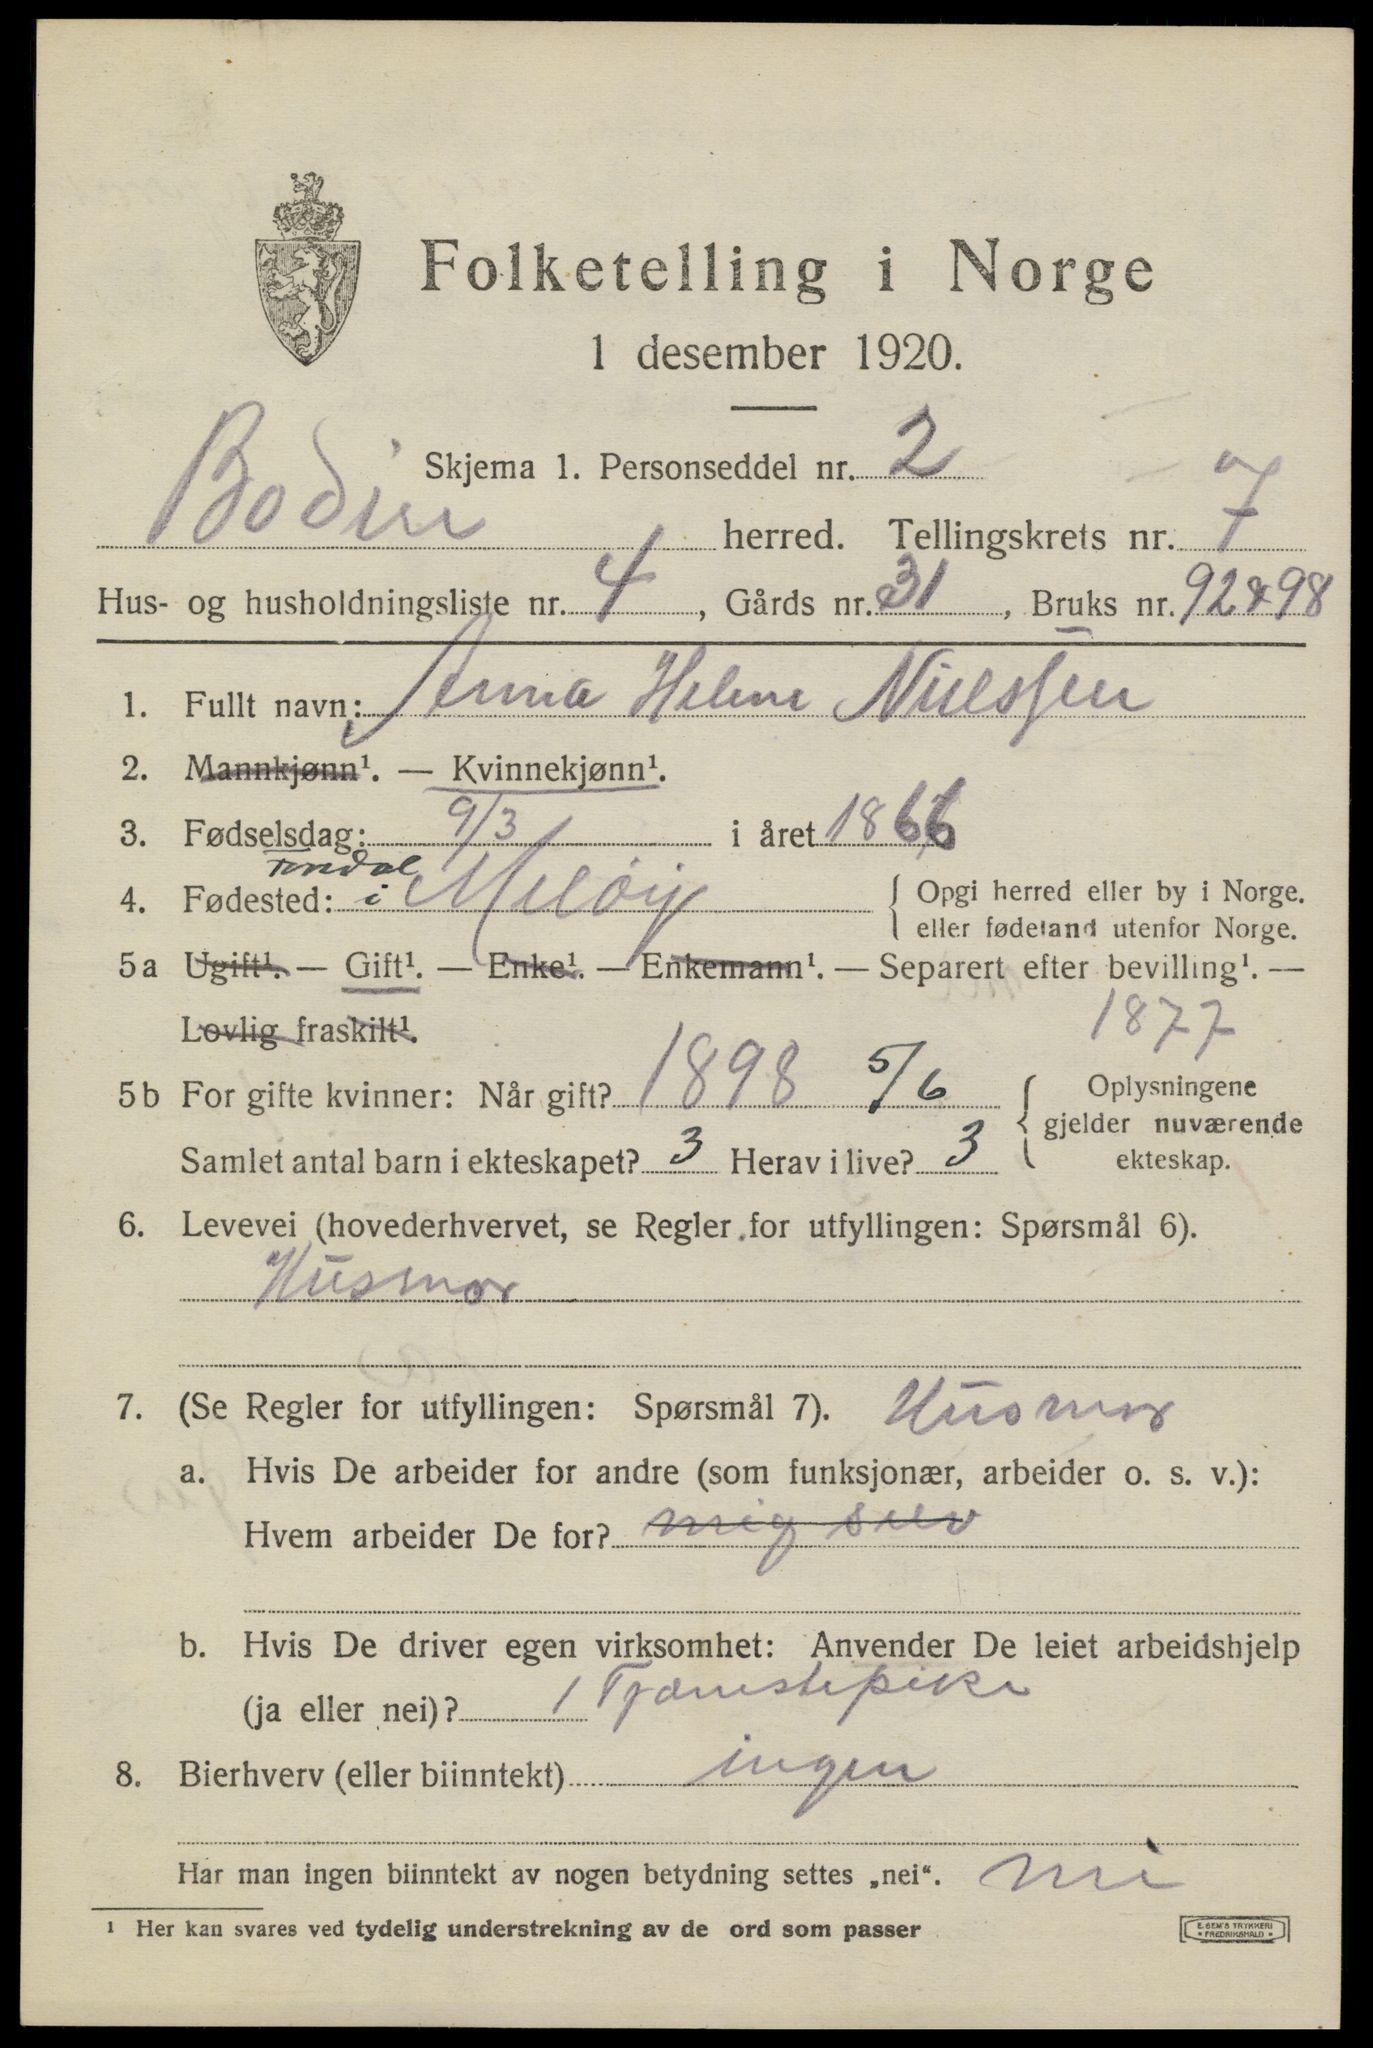 Folketelling i Norge
1 desember 1920.
Skjema 1. Personseddel nr. 2
Bodin herred. Tellingskrets nr. 7
Hus- og husholdningsliste nr. 4, Gårds nr. 31, Bruks nr. 92 & 98
1. Fullt navn: Anna Helene Nielssen
2. Mannkjønn¹. — Kvinnekjønn¹.
3. Fødselsdag: 9/3 i året 1866
4. Fødested: i Meløy { Opgi herred eller by i Norge.
eller fødeland utenfor Norge.
5a Ugift¹. — Gift¹. — Enke¹. — Enkemann¹. — Separert efter bevilling¹. —
Lovlig fraskilt¹. 1877
5b For gifte kvinner: Når gift? 1898 5/6 { Oplysningene
gjelder nuværende
Samlet antal barn i ekteskapet? 3 Herav i live? 3 ekteskap.
6. Levevei (hovederhvervet, se Regler for utfyllingen: Spørsmål 6).
Husmor
7. (Se Regler for utfyllingen: Spørsmål 7). Husmor
a. Hvis De arbeider for andre (som funksjonær, arbeider o. s. v.):
Hvem arbeider De for? mig selv
b. Hvis De driver egen virksomhet: Anvender De leiet arbeidshjelp
(ja eller nei)? 1 Tjenestepike
8. Bierhverv (eller biinntekt) ingen
Har man ingen biinntekt av nogen betydning settes „nei“. nei
¹ Her kan svares ved tydelig understrekning av de ord som passer
E. SEM'S TRYKKERI
* FREDRIKSHALD *